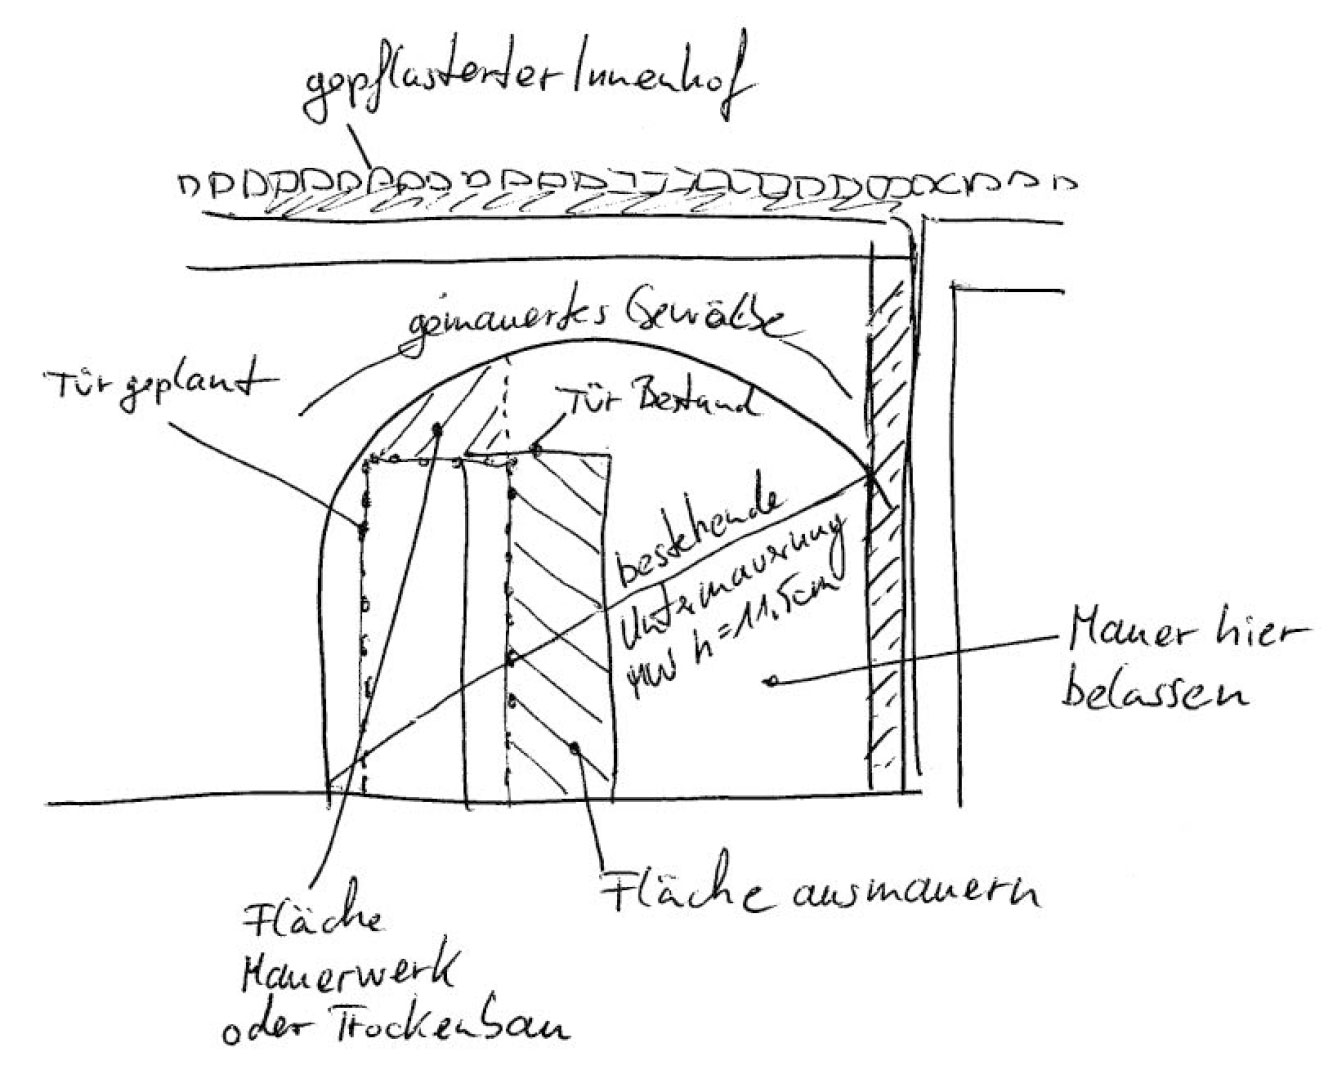 gepflasterter Innenhof
gemauertes Gewölbe
Tür geplant
Tür Bestand
bestehende
Untermauerung
MW h=11.5cm
Mauer hier
belassen
Fläche ausmauern
Fläche
Mauerwerk
oder Trockenbau